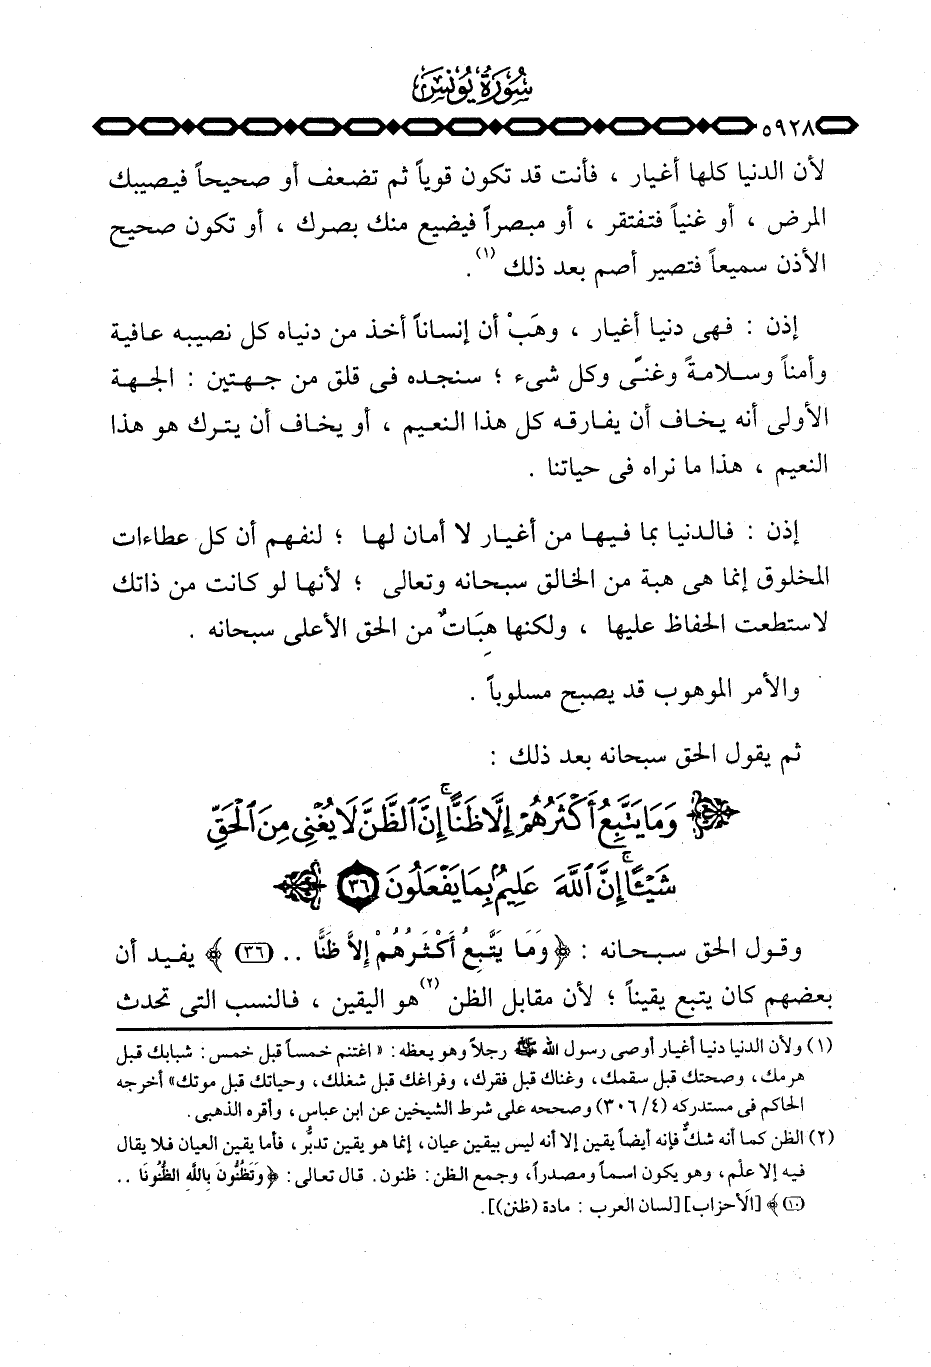 سُورَةُ يُونُسَ
٥٩٢٨
لأن الدنيا كلها أغيار ، فأنت قد تكون قوياً ثم تضعف أو صحيحاً فيصيبك
المرض ، أو غنياً فتفتقر ، أو مبصراً فيضيع منك بصرك ، أو تكون صحيح
الأذن سميعاً فتصير أصم بعد ذلك (١).
إذن : فهى دنيا أغيار ، وهَبْ أن إنساناً أخذ من دنياه كل نصيبه عافية
وأمناً وسلامةً وغنًى وكل شىء ؛ سنجده فى قلق من جهتين : الجهة
الأولى أنه يخاف أن يفارقه كل هذا النعيم ، أو يخاف أن يترك هو هذا
النعيم ، هذا ما نراه فى حياتنا .
إذن : فالدنيا بما فيها من أغيار لا أمان لها ؛ لنفهم أن كل عطاءات
المخلوق إنما هى هبة من الخالق سبحانه وتعالى ؛ لأنها لو كانت من ذاتك
لاستطعت الحفاظ عليها ، ولكنها هِبَاتٌ من الحق الأعلى سبحانه .
والأمر الموهوب قد يصبح مسلوباً .
ثم يقول الحق سبحانه بعد ذلك :
وَمَا يَتَّبِعُ أَكْثَرُهُمْ إِلَّا ظَنًّا ۚ إِنَّ ٱلظَّنَّ لَا يُغْنِى مِنَ ٱلْحَقِّ
شَيْـًٔا ۚ إِنَّ ٱللَّهَ عَلِيمٌۢ بِمَا يَفْعَلُونَ ٣٦
وقول الحق سبحانه : ﴿ وَمَا يَتَّبِعُ أَكْثَرُهُمْ إِلاَّ ظَنًّا .. (٣٦) ﴾ يفيد أن
بعضهم كان يتبع يقيناً ؛ لأن مقابل الظن (٢) هو اليقين ، فالنسب التى تحدث
(١) ولأن الدنيا دنيا أغيار أوصى رسول الله ﷺ رجلاً وهو يعظه : « اغتنم خمساً قبل خمس : شبابك قبل
هرمك، وصحتك قبل سقمك، وغناك قبل فقرك، وفراغك قبل شغلك، وحياتك قبل موتك» أخرجه
الحاكم فى مستدركه (٤/ ٣٠٦) وصححه على شرط الشيخين عن ابن عباس ، وأقره الذهبى .
(٢) الظن كما أنه شكٌّ فإنه أيضاً يقين إلا أنه ليس بيقين عيان، إنما هو يقين تدبُّر، فأما يقين العيان فلا يقال
فيه إلا علْم، وهو يكون اسماً ومصدراً، وجمع الظن : ظنون. قال تعالى : ﴿وَتَظُنُّونَ بِاللَّهِ الظُّنُونَا ..
(١٠)﴾ [الأحزاب] [لسان العرب : مادة (ظنن)].